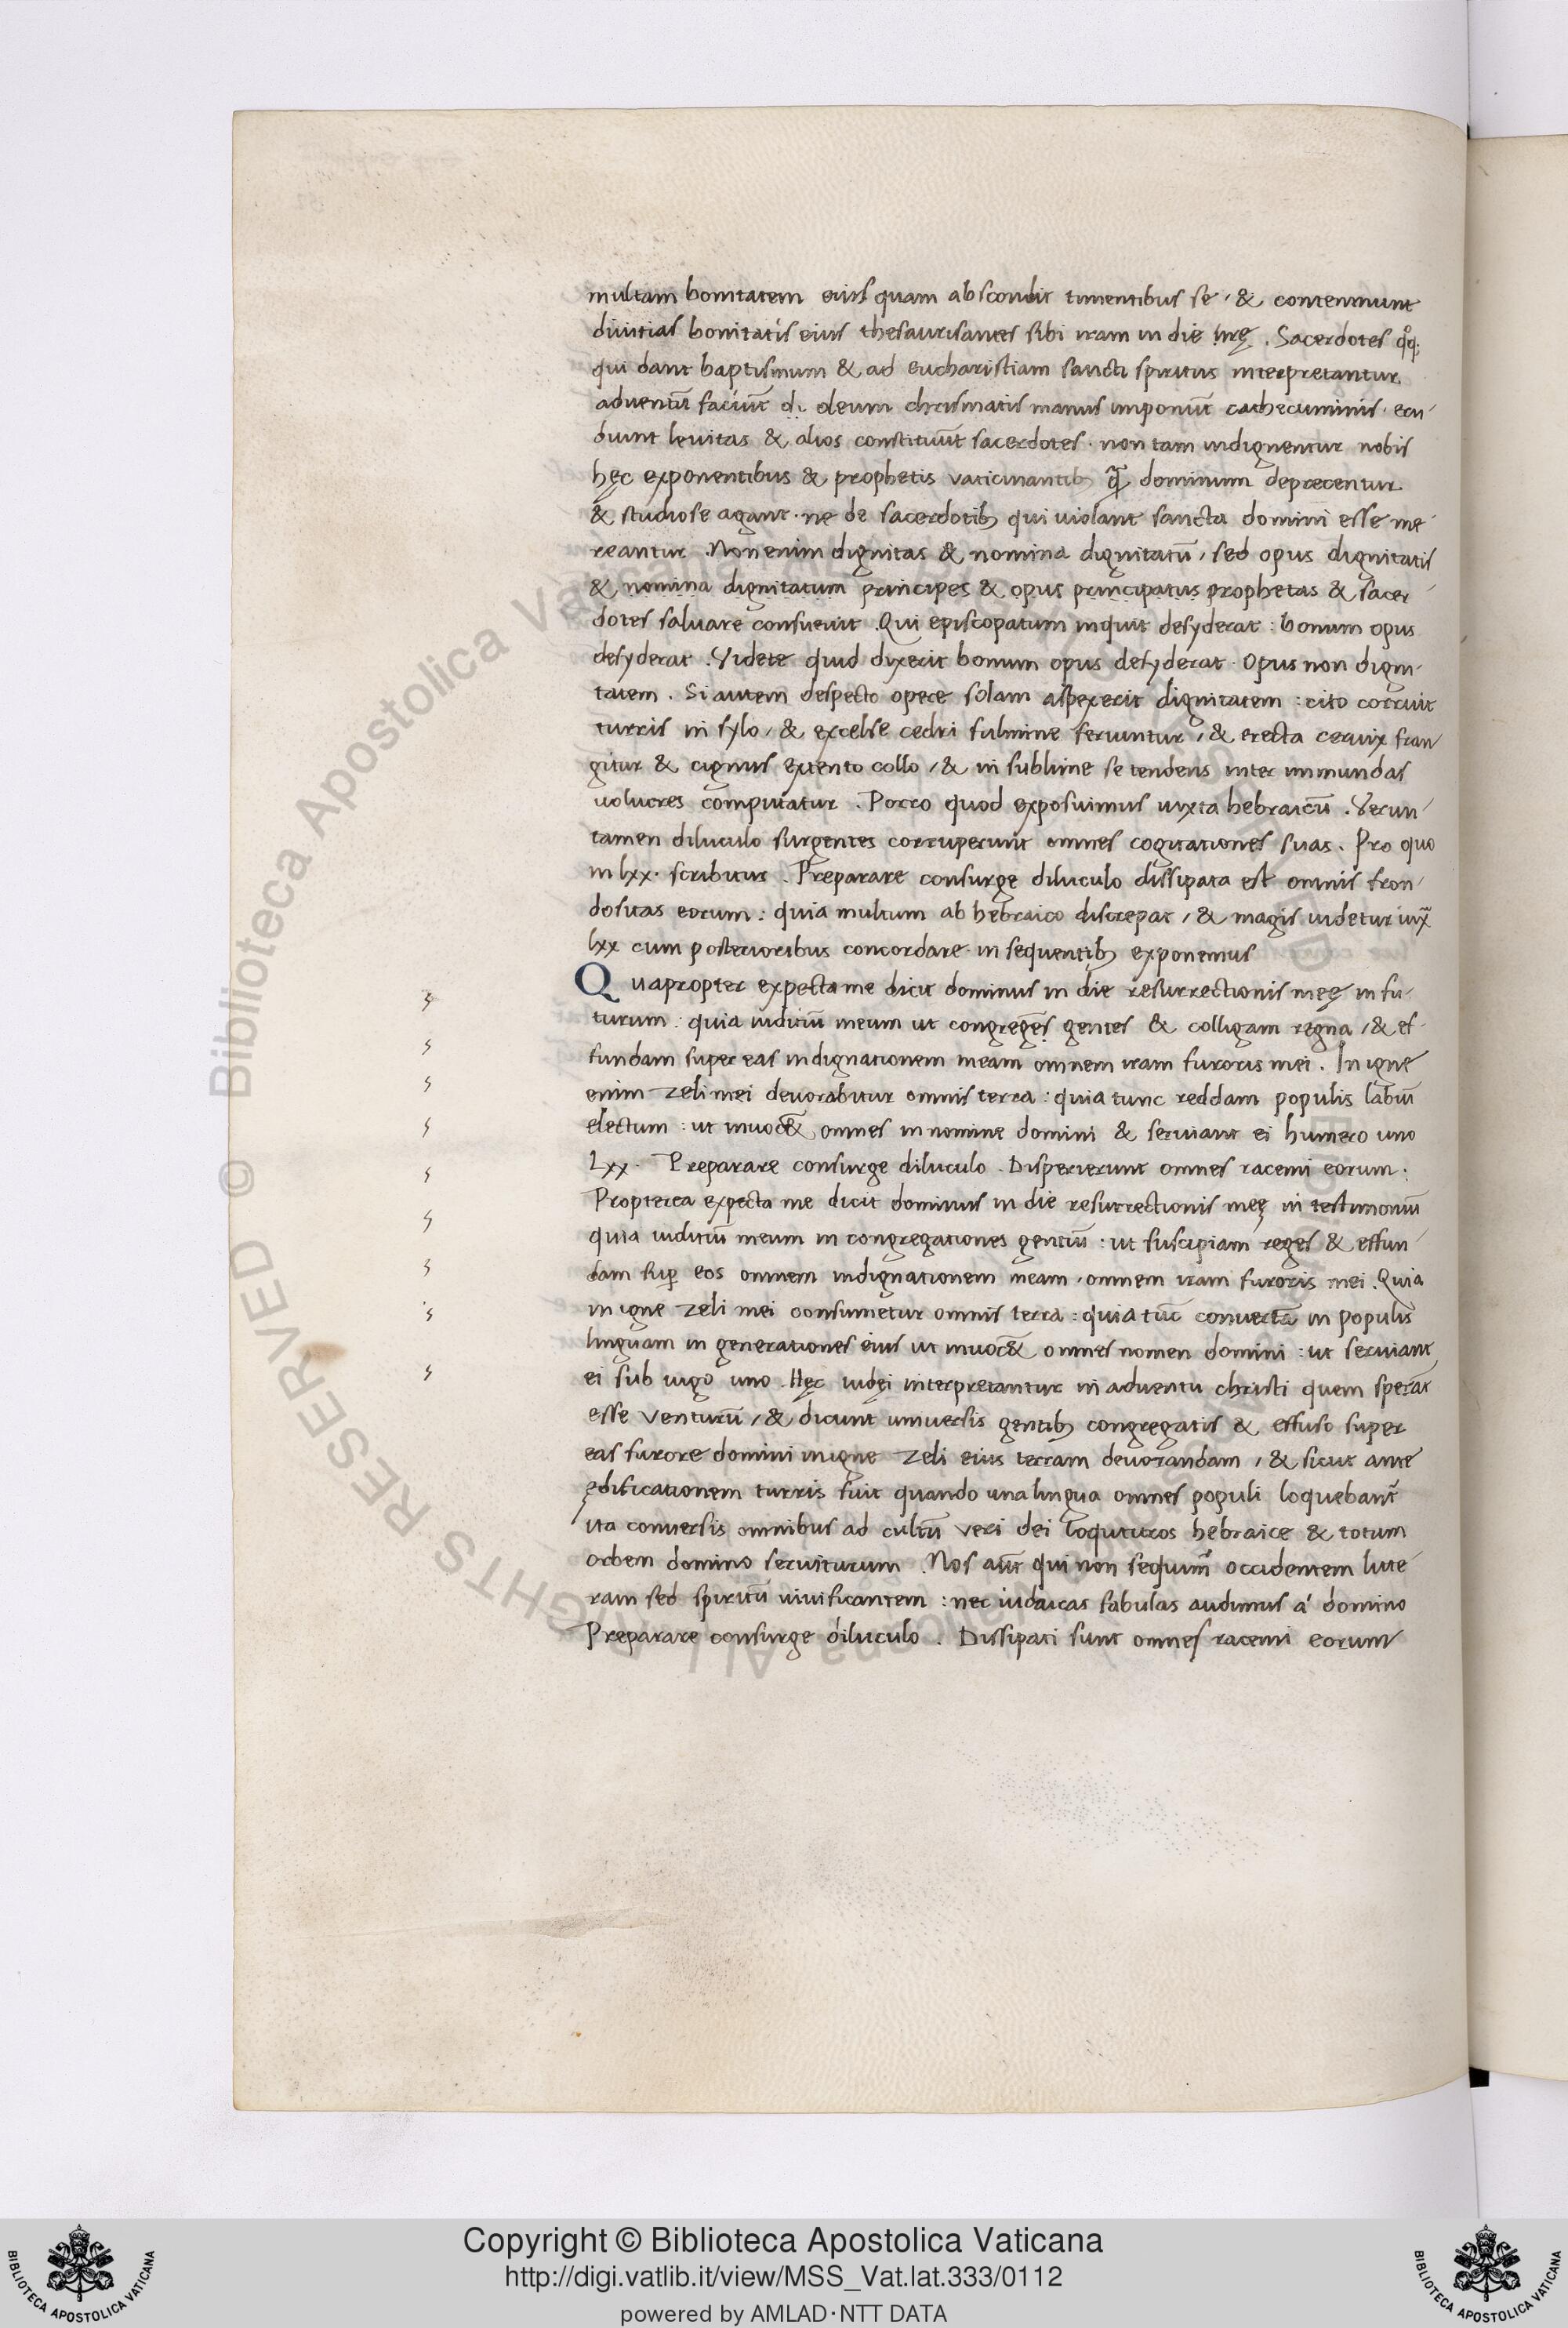 multam bonitatem eius quam abscondit timentibus se, & contemnunt
diuitias bonitatis eius thesaurisantes sibi iram in die irę. Sacerdotes qͦq;
qui dant baptismum & ad eucharistiam sancti spiritus interpretantur
aduentū faciūt oleum chrismatis manus imponūt cathecuminis. eru-
diunt leuitas & alios constituūt sacerdotes. non tam indignentur nobis
hęc exponentibus & prophetis vaticinantib; q̄ dominum deprecentur
& studiose agant. ne de sacerdotib; qui uiolant sancta domini esse me-
reantur. Non enim dignitas & nomina dignitatū, sed opus dignitatis
& nomina dignitatum principes & opus principatus prophetas & sacer-
dotes saluare consueuit. Qui episcopatum inquit desyderat: bonum opus
desyderat. Videte quid dixerit bonum opus desyderat. Opus non digni-
tatem. Si autem despecto opere solam aspexerit dignitatem: cito corruit
turris in sylo, & excelse cedri fulmine feriuntur, & erecta ceruix fran-
gitur & cignus extento collo, & in sublime se tendens inter immundas
uolucres computatur. Porro quod exposuimus iuxta hebraicū. Verun-
tamen diluculo surgentes corruperunt omnes cogitationes suas. Pro quo
in lxx. scribitur. Preparare consurge diluculo dissipata est omnis fron-
dositas eorum: quia multum ab hebraico discrepat, & magis uidetur iux̄
lxx cum posterioribus concordare. in sequentib; exponemus
Quapropter expecta me dicit dominus in die resurrectionis meę in fu-
turum: quia iuditiū meum ut congregēs gentes & colligam regna, & ef-
fundam super eas indignationem meam omnem iram furoris mei. In igne
enim zeli mei deuorabitur omnis terra: quia tunc reddam populis labiū
electum: ut inuocē& omnes in nomine domini & seruiant ei humero uno
Lxx. Preparare consurge diluculo. Disperierunt omnes racemi eorum.
Propterea expecta me dicit dominus in die resurrectionis meę in testimoniū
quia iuditiū meum in congregationes gentiū: ut suscipiam reges & effun-
dam sup̱ eos omnem indignationem meam, omnem iram furoris mei. Quia
in igne zeli mei consumetur omnis terra: quia tūc conuertā in populis
linguam in generationes eius ut inuocē& omnes nomen domini: ut seruiant
ei sub iugo uno. Hęc iudęi interpretantur in aduentu christi quem sperāt
esse venturū, & dicunt uniuersis gentib; congregatis & effuso super
eas furore domini in igne zeli eius terram deuorandam, & sicut ante
ędificationem turris fuit quando una lingua omnes populi loquebant᷑
ita conuersis omnibus ad cultū veri dei loquturos hebraice & totum
orbem domino seruiturum. Nos aūt qui non sequim᷑ occidentem litte-
ram sed spiritū uiuificantem: nec iudaicas fabulas audimus á domino
Preparare consurge diluculo. Dissipati sunt omnes racemi eorum
Copyright © Biblioteca Apostolica Vaticana
http://digi.vatlib.it/view/MSS_Vat.lat.333/0112
powered by AMLAD·NTT DATA